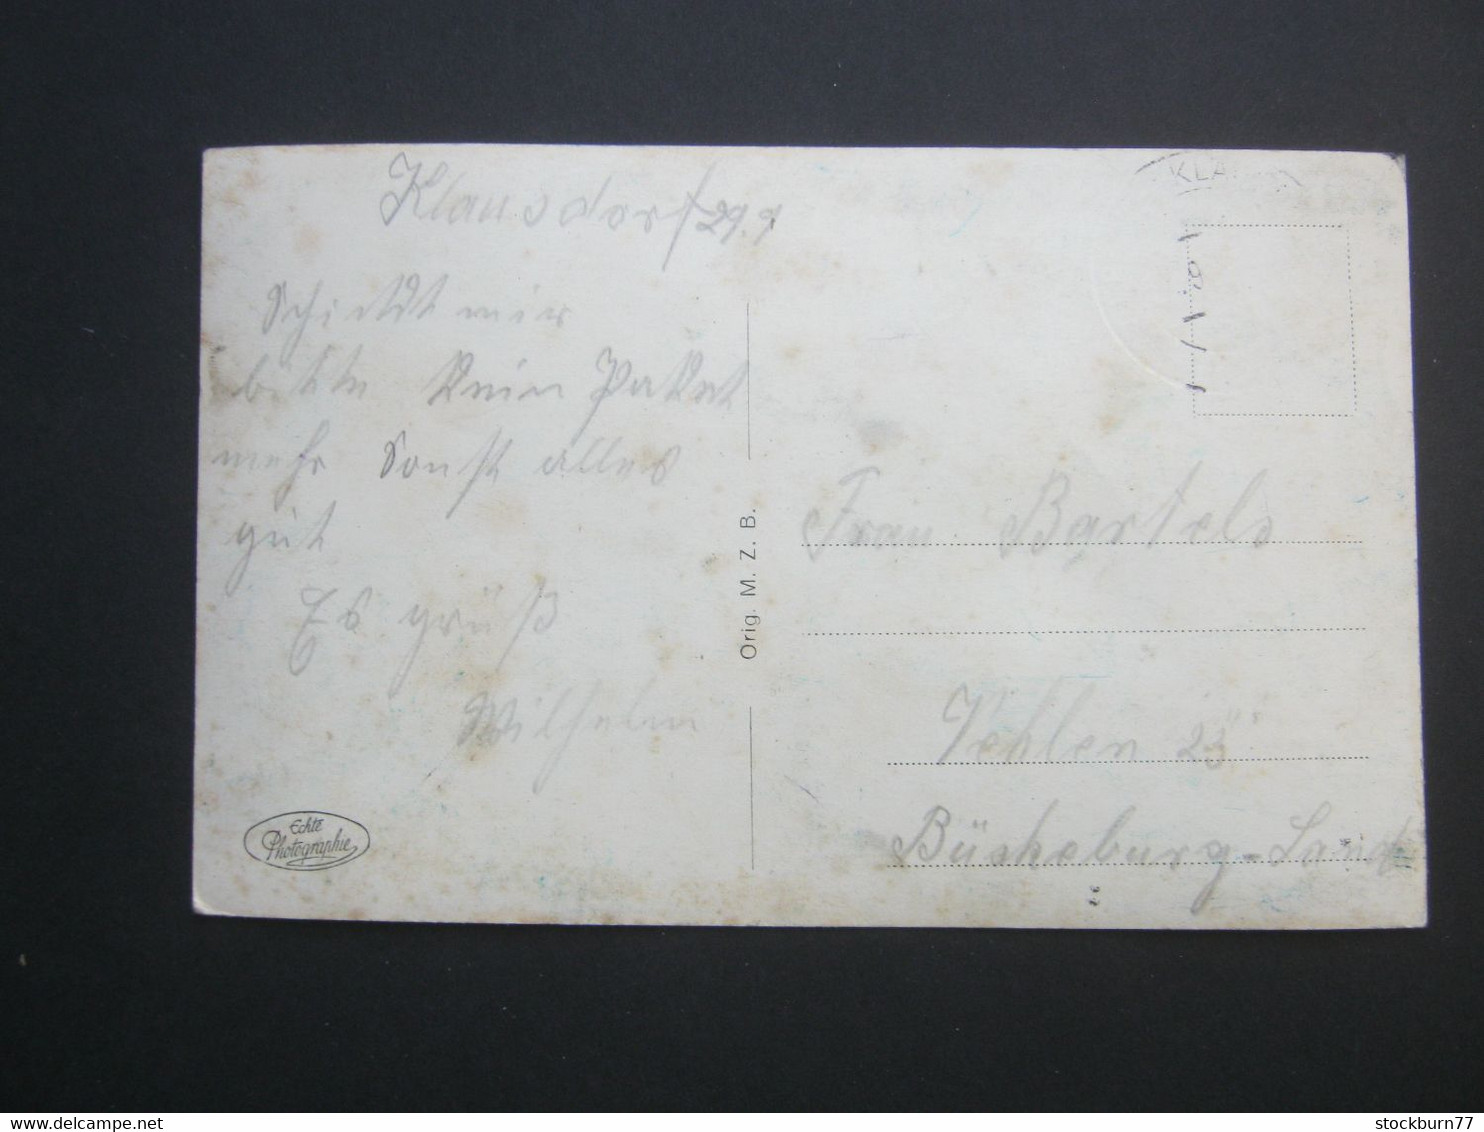 Klausdorf 29. 9
Schickt mir
bitte kein Paket
mehr Sonst alles
gut
Es grüß
Wilhelm
Echte
Photographie
Orig. M. Z. B.
KLA
Frau Bartels
Vehlen 23
Bückeburg-Land
stockburn77